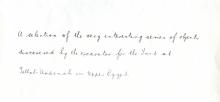 A selection of the very interesting series of objects
discovered by the Executor for the Fund at
Tell el-Amarnah in Upper Egypt.